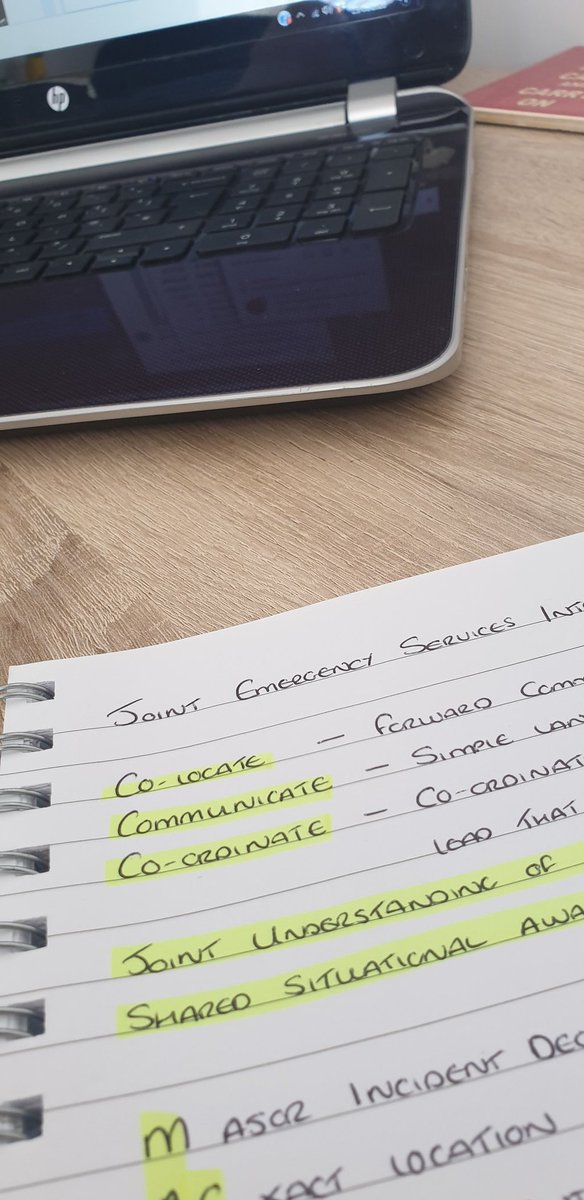 hp
CARRY
ON
JOINT EMERGENCY SERVICES INT
CO-LOCATE — FORWARD COMM
COMMUNICATE — SIMPLE LAN
CO-ORDINATE — CO-ORDINAT
LEAD THAT
JOINT UNDERSTANDING OF
SHARED SITUATIONAL AWA
MAJOR INCIDENT DEC
EXACT LOCATION